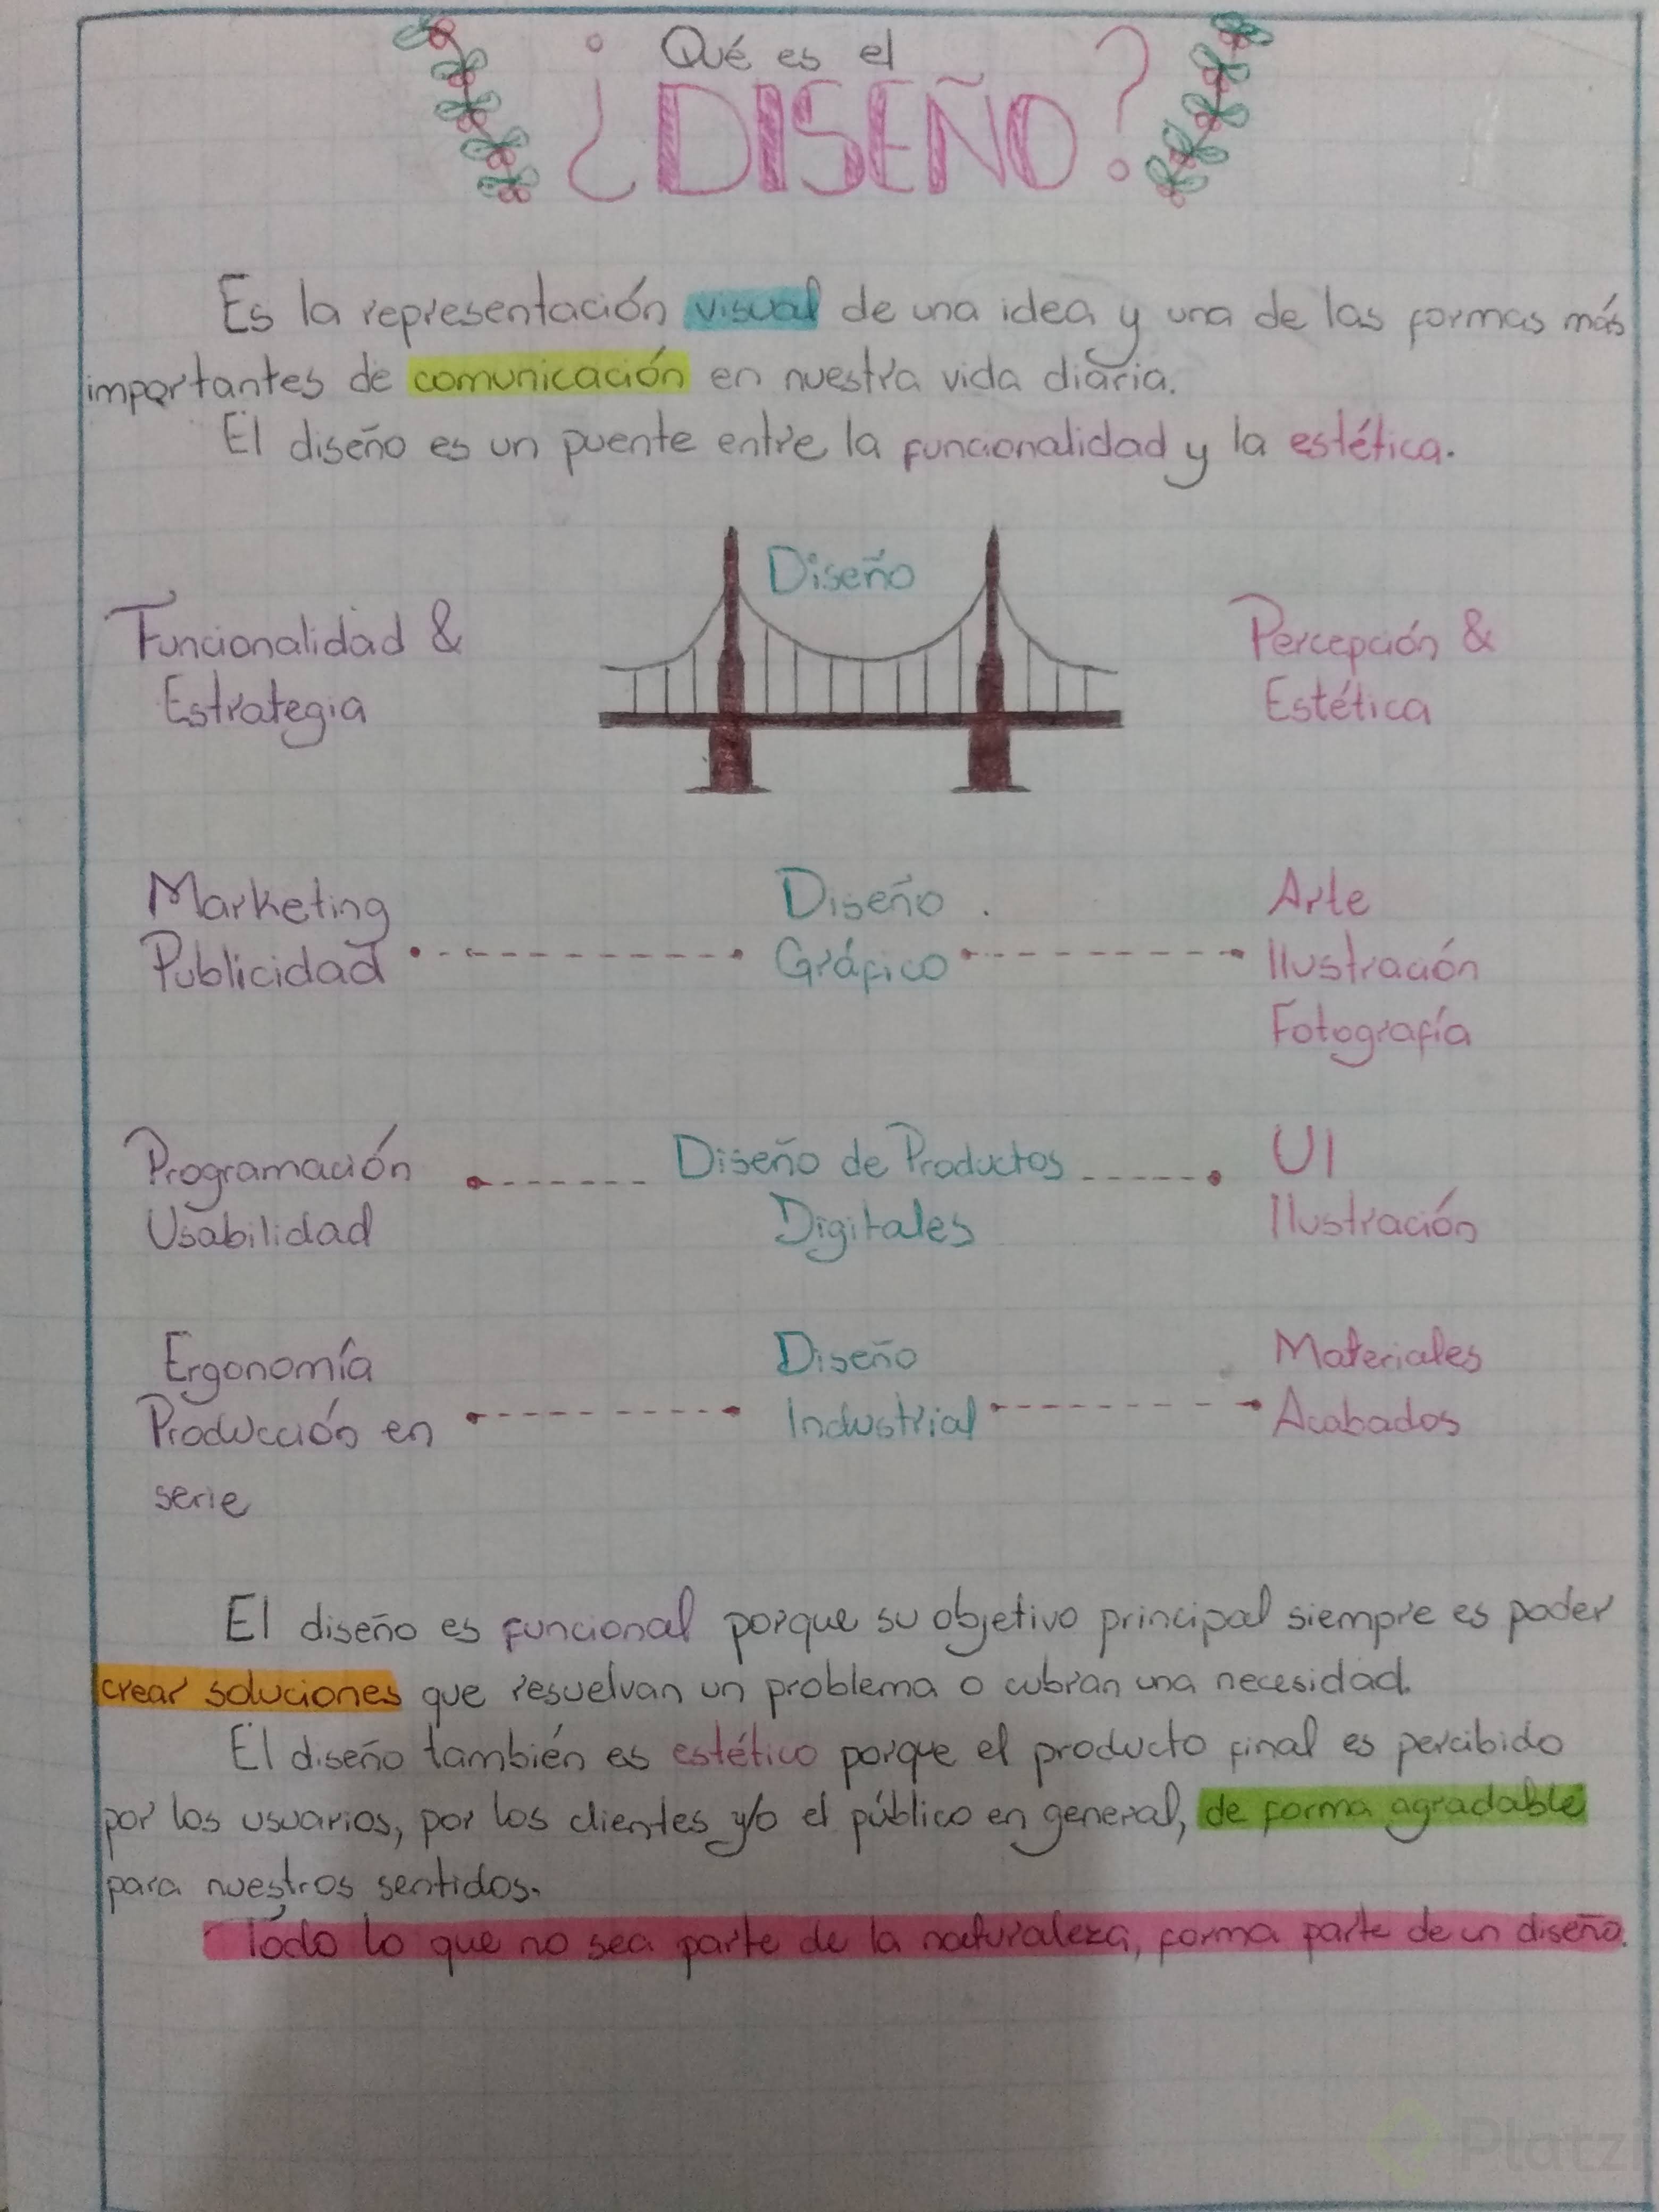 Qué es el
¿DISEÑO?
Es la representación visual de una idea y una de las formas más
importantes de comunicación en nuestra vida diaria.
El diseño es un puente entre la funcionalidad y la estética.
Diseño
Funcionalidad &
Estrategia
Percepción &
Estética
Marketing
Publicidad
Diseño
Gráfico
Arte
Ilustración
Fotografía
Programación
Usabilidad
Diseño de Productos
Digitales
UI
Ilustración
Ergonomía
Producción en
serie
Diseño
Industrial
Materiales
Acabados
El diseño es funcional porque su objetivo principal siempre es poder
crear soluciones que resuelvan un problema o cubran una necesidad.
El diseño también es estético porque el producto final es percibido
por los usuarios, por los clientes y/o el público en general, de forma agradable
para nuestros sentidos.
Todo lo que no sea parte de la naturaleza, forma parte de un diseño.
Platzi